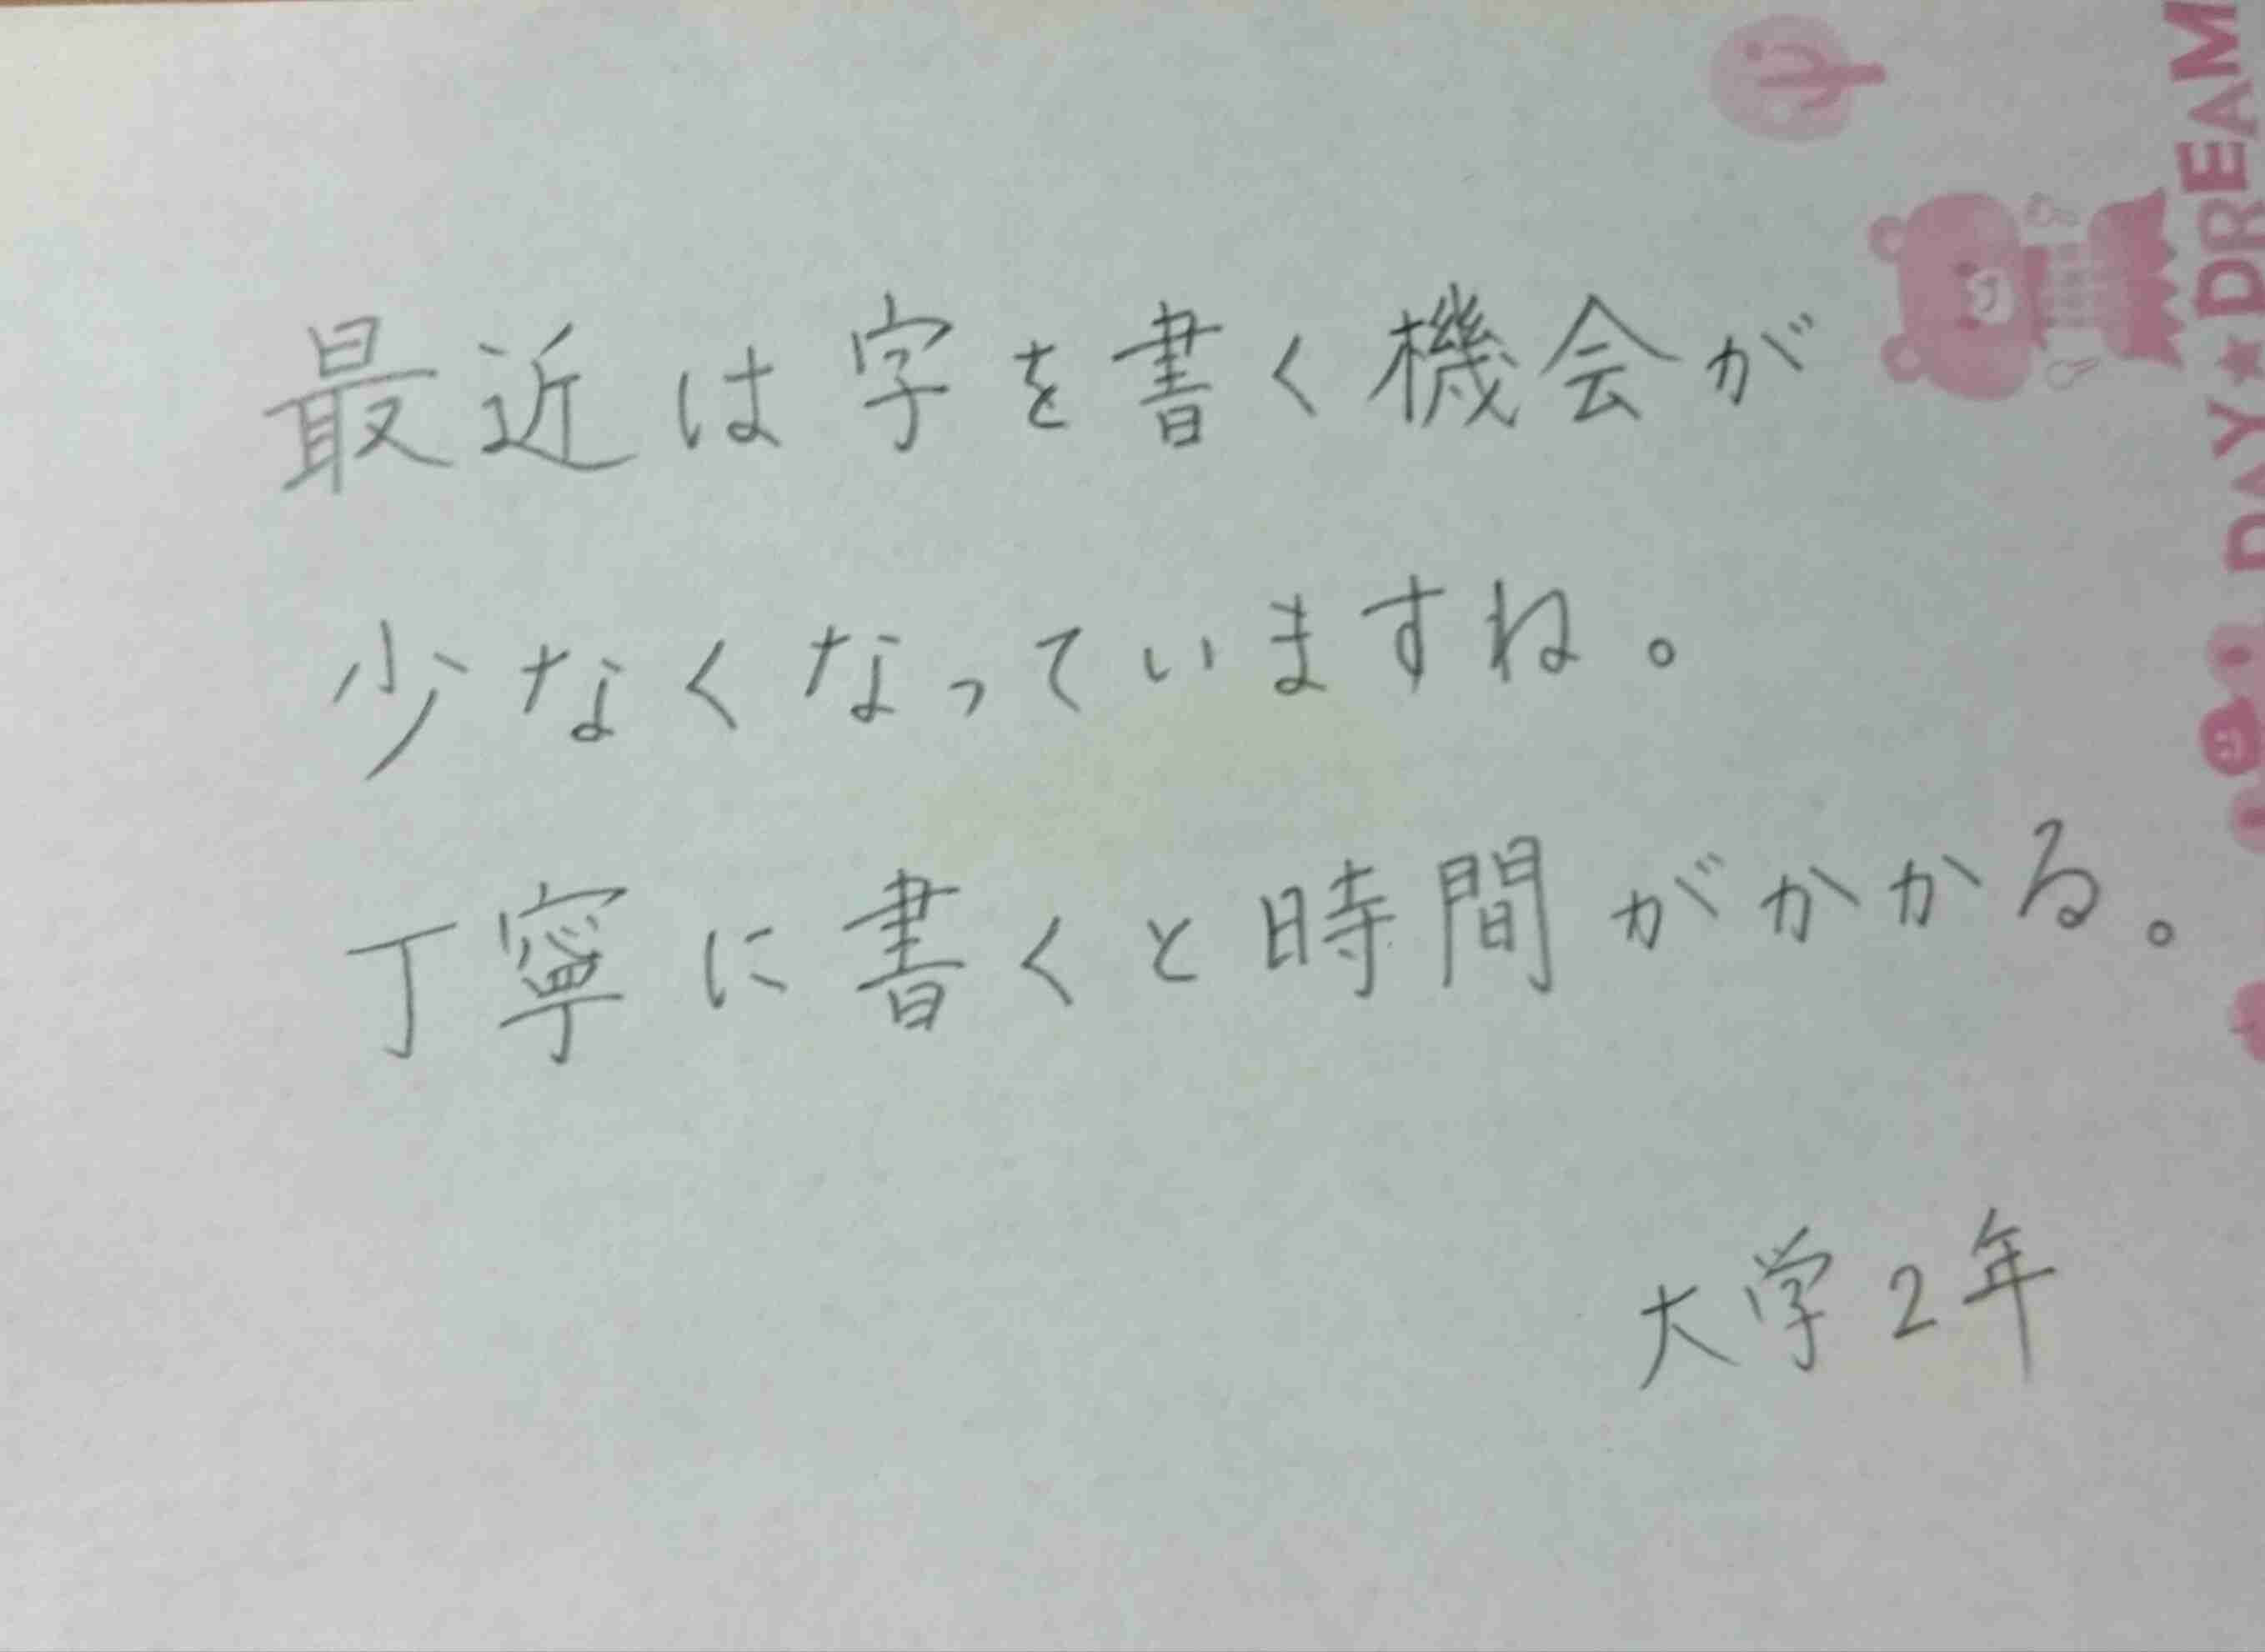 最近は字を書く機会が
少なくなっていますね。
丁寧に書くと時間がかかる。
大学2年
DAY★DREAM